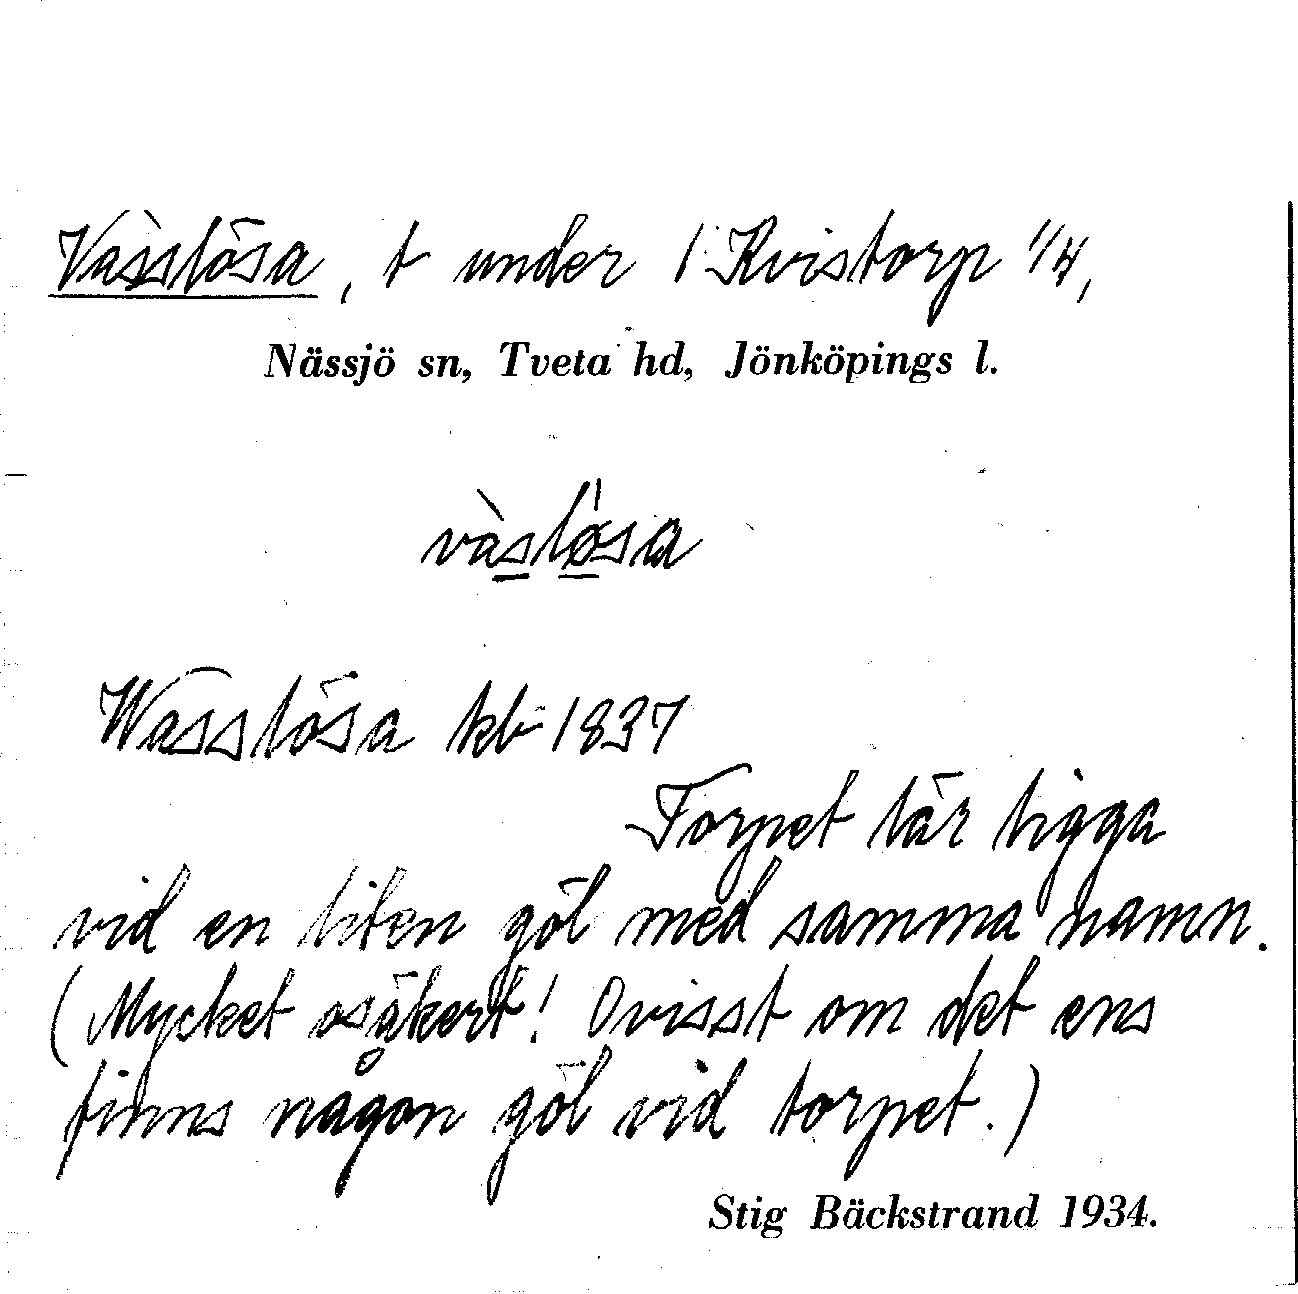 Vasslösa, t under 1 Kvistorp 1/4,
Nässjö sn, Tveta hd, Jönköpings l.
vàslø̀sa
Wasslösa kb 1837
Torpet lär ligga
vid en liten göl med samma namn.
(Mycket osäkert! Ovisst om det ens
finns någon göl vid torpet.)
Stig Bäckstrand 1934.